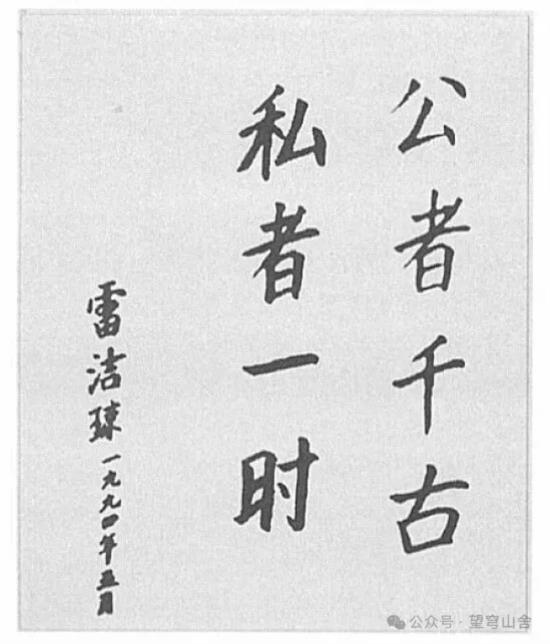 公者千古
私者一时
雷洁琼一九九四年五月
公众号·望穹山舍